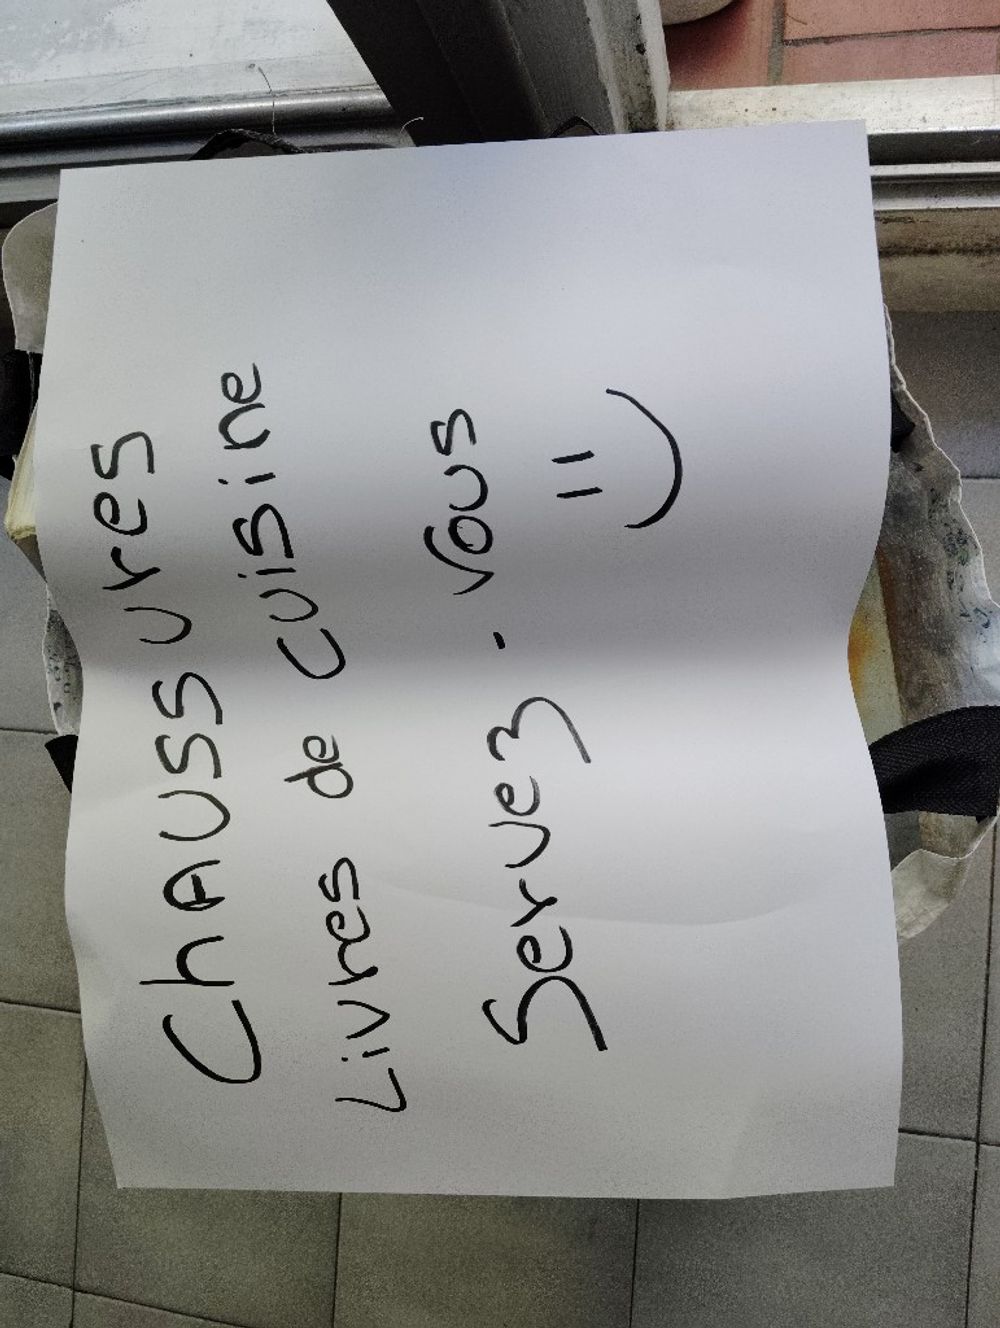 ChAUSSUreS
Livres de cuisine
Servez-vous
=)